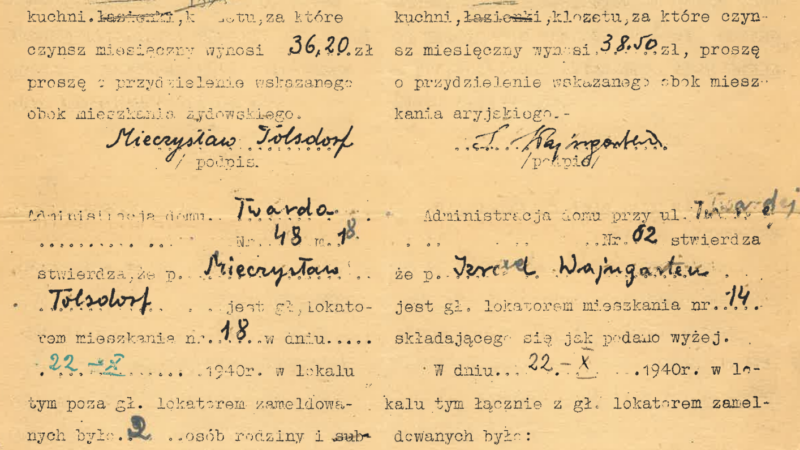 kuchni, łazienki, klozetu, za które
czynsz miesięczny wynosi 36,20 zł
proszę o przydzielenie wskazanego
obok mieszkania żydowskiego.
Mieczysław Tölsdorf
/podpis.
Administracja domu Twarda
Nr. 48 m. 18
stwierdza, że p. Mieczysław
Tölsdorf jest gł. lokato-
rem mieszkania nr. 18 w dniu
22 - X 1940r. w lokalu
tym poza gł. lokatorem zameldowa-
nych było 2 osób rodziny i sub-
kuchni, łazienki, klozetu, za które czyn-
sz miesięczny wynosi 38.50 zł, proszę
o przydzielenie wskazanego obok miesz-
kania aryjskiego.-
Wajngarten
/podpis/
Administracja domu przy ul. Twardej
Nr. 62 stwierdza
że p. Izrael Wajngarten
jest gł. lokatorem mieszkania nr. 14
składającego się jak podano wyżej.
W dniu 22. - X 1940r. w lo-
kalu tym łącznie z gł. lokatorem zamel-
dowanych było: